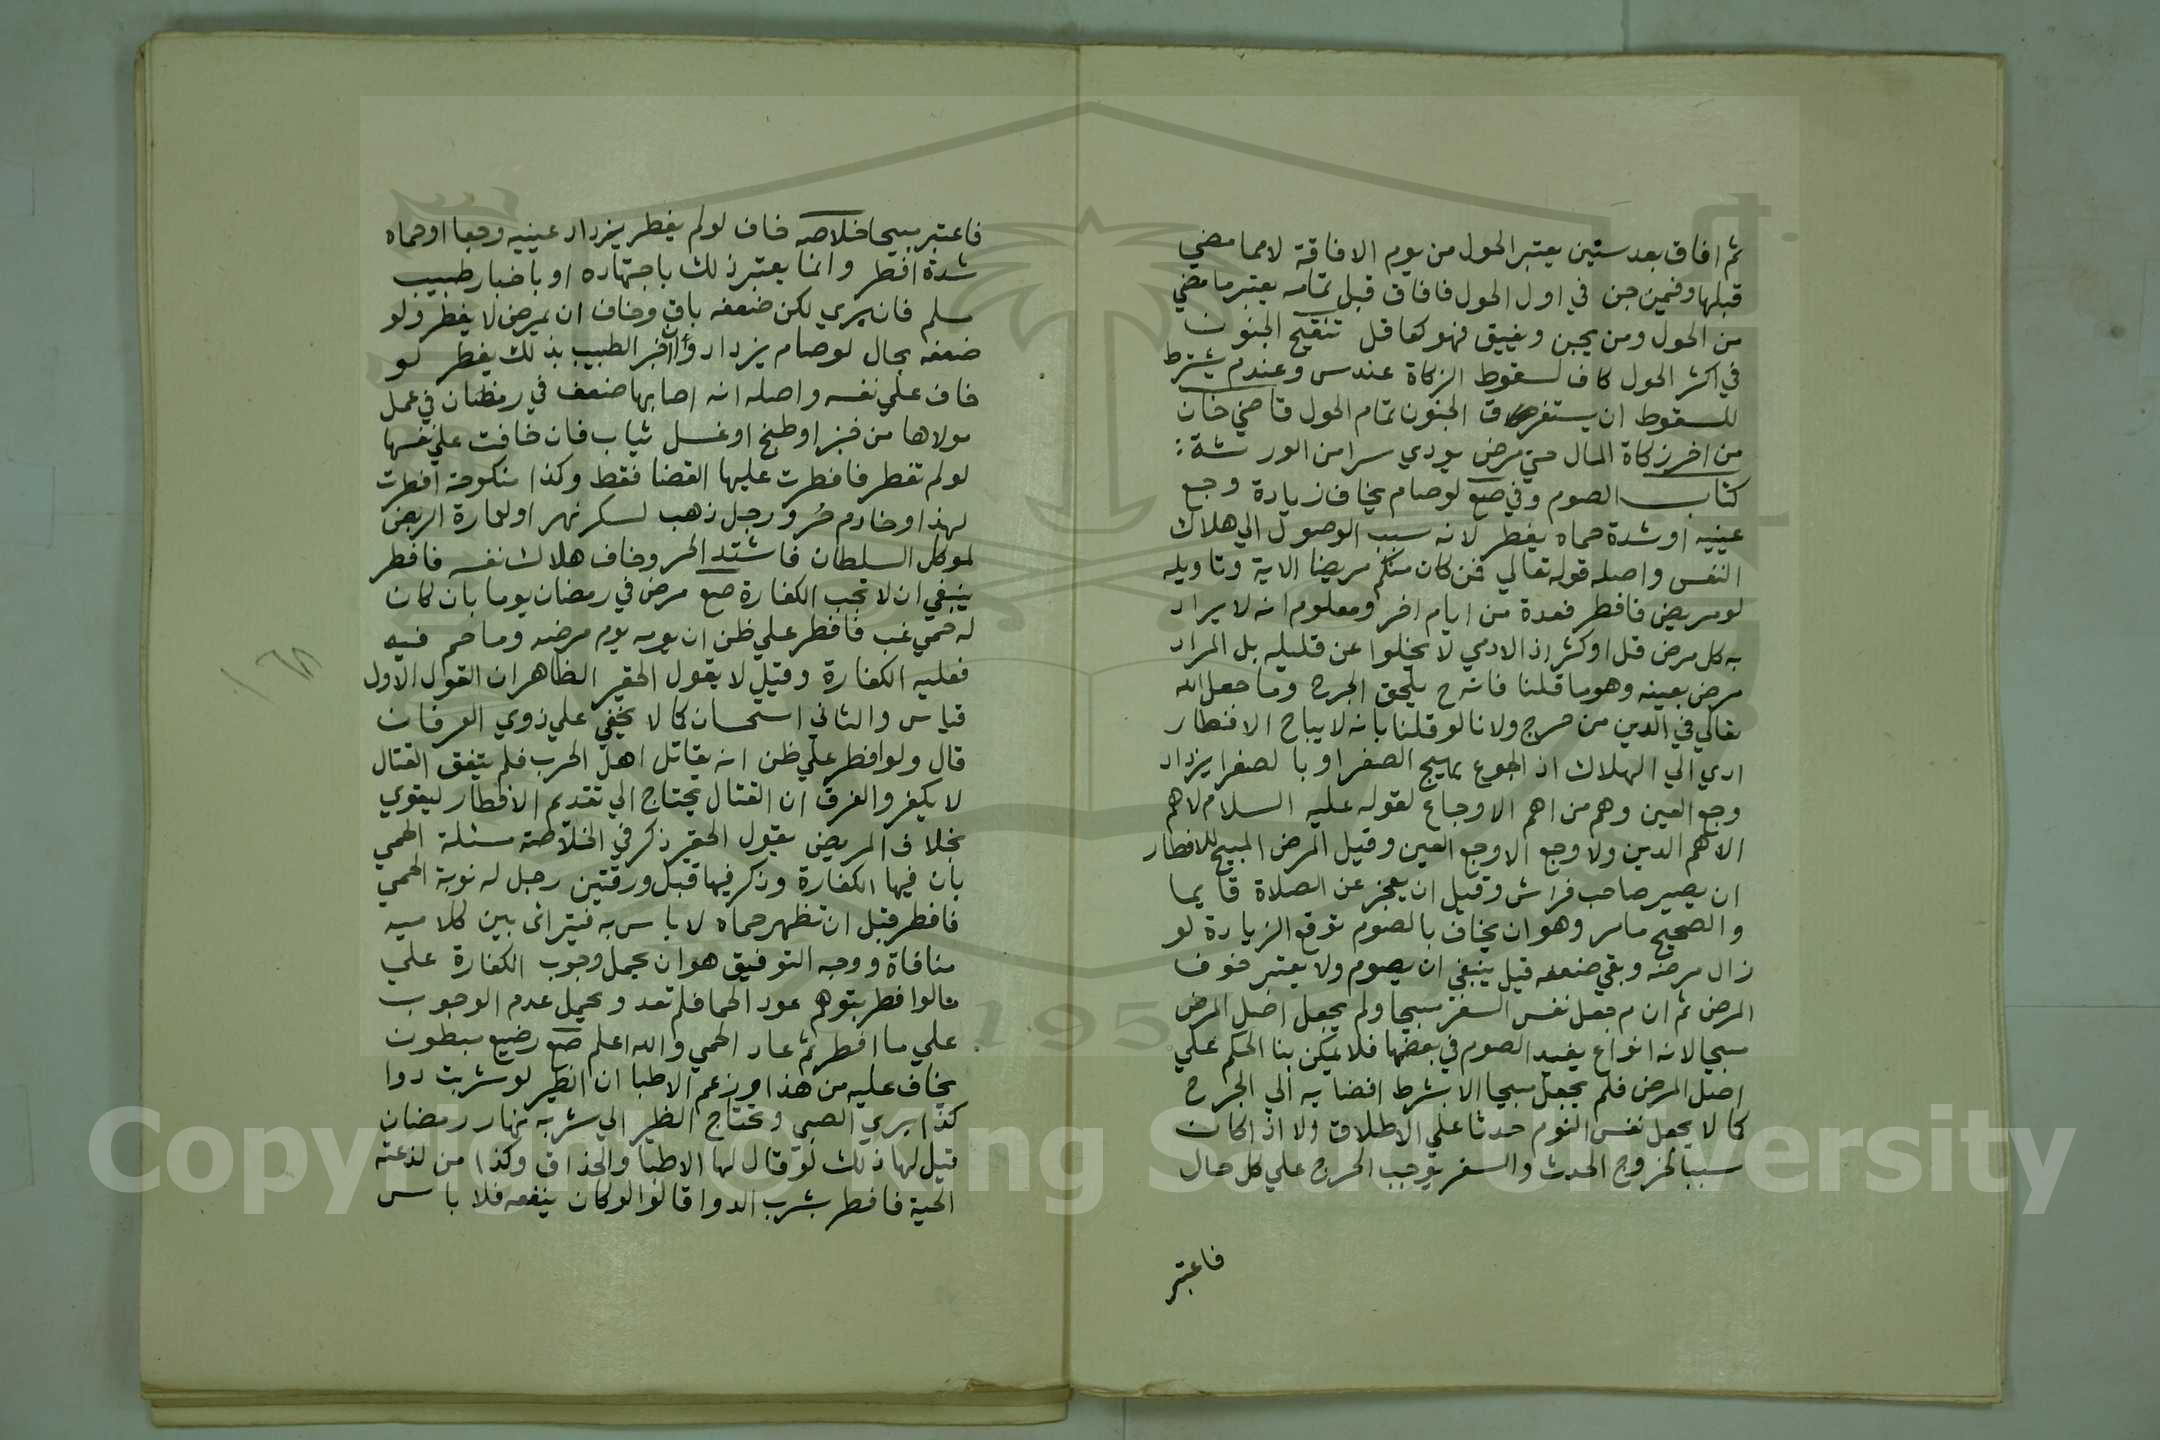 ثم افاق بعد ستين يعتبر الحول من يوم الافاقة لا مما مضي
قبلها وفمين جن في اول الحول فافاق قبل تمامه يعتبر ما مضي
من الحول ومن يجن ويفيق فهو كعاقل تنقيح الجنون
في اكثر الحول كاف لسقوط الزكاة عند س وعند م يشترط
للسقوط ان يستغرق الجنون تمام الحول قاضي خان
من اخر زكاة المال حتي مرض يودي سرا من الورثة
كتاب الصوم وفي صع لو صام يخاف زيادة وجع
عينيه او شدة حماه يفطر لانه سبب الوصول الي هلاك
النفس واصله قوله تعالي فمن كان منكم مريضا الاية وتاويله
لو مريض فافطر فعدة من ايام اخر ومعلوم انه لا يراد
به كل مرض قل او كثر اذ الادمي لا يخلوا عن قليله بل المراد
مرض بعينه وهو ما قلنا فانه ح يلحق الحرج وما جعل الله
تعالي في الدين من حرج ولانا لو قلنا بانه لا يباح الافطار
ادي الي الهلاك اذ الجوع يهيج الصفرا وبالصفرا يزداد
وجع العين وهم من اهم الاوجاع لقوله عليه السلام لا هم
الا هم الدين ولا وجع الا وجع العين وقيل المرض المبيح للافطار
ان يصير صاحب فراش وقيل ان يعجز عن الصلاة قايما
والصحيح ما مر وهو ان يخاف بالصوم توقع الزيادة لو
زال مرضه وبقي ضعفه قيل ينبغي ان يصوم ولا يعتبر خوف
المرض ثم ان م جعل نفس السفر مبيحا ولم يجعل اصل المرض
مبيحا لانه انواع يفيد الصوم في بعضها فلا يمكن بنا الحكم علي
اصل المرض فلم يجعل مبيحا الا بشرط افضايه الي الحرج
كما لا يجعل نفس النوم حدثا علي الاطلاق ولا اذا كان
سببا لخروج الحدث والسفر يوجب الحرج علي كل حال
فاعتبر
فاعتبر مبيحا خلاصه خاف لو لم يفطر يزداد عينيه وجعا او حماه
شدة افطر وانما يعتبر ذلك باجتهاده او باخبار طبيب
مسلم فان بري لكن ضعفه باق وخاف ان يمرض لا يفطر ولو
ضعفه بحال لو صام يزداد واخبر الطبيب بذلك يفطر لو
خاف علي نفسه واصله انه اصابها ضعف في رمضان في عمل
مولاها من خبز او طبخ او غسل ثياب فان خافت علي نفسها
لو لم تفطر فافطرت عليها القضا فقط وكذا منكوحة افطرت
لهذا او خادم حر ورجل ذهب لسكر نهر او لعمارة الربض
لموكل السلطان فاشتد الحر وخاف هلاك نفسه فافطر
ينبغي ان لا تجب الكفارة صع مرض في رمضان يوما بان كان
له حمي غب فافطر علي ظن ان يومه يوم مرضه وما حم فيه
فعليه الكفارة وقيل لا يقول الحقير الظاهر ان القول الاول
قياس والثاني استحسان كما لا يخفي علي ذوي العرفان
قال ولو افطر علي ظن انه يقاتل اهل الحرب فلم يتفق القتال
لا يكفر والفرق ان القتال يحتاج الي تقديم الافطار ليقوي
بخلاف المريض يقول الحقير ذكر في الخلاصة مسئلة الحمي
بان فيها الكفارة وذكر فيها قبل ورقتين رجل له نوبة الحمي
فافطر قبل ان تظهر حماه لا باس به فيترائ بين كلاميه
منافاة ووجه التوفيق هو ان يحمل وجوب الكفارة علي
ما لو افطر بتوهم عود الحما فلم تعد ويحمل عدم الوجوب
علي ما افطر ثم عاد الحمي والله اعلم صع رضيع مبطون
يخاف عليه من هذا وزعم الاطبا ان الظير لو شربت دوا
كذا بري الصبي وتحتاج الظير الي شربه نهار رمضان
قيل لها ذلك لو قال لها الاطبا والحذاق وكذا من لدغته
الحية فافطر بشرب الدوا قالوا لو كان ينفعه فلا باس
١٦٨
Copyright © King Saud University
195